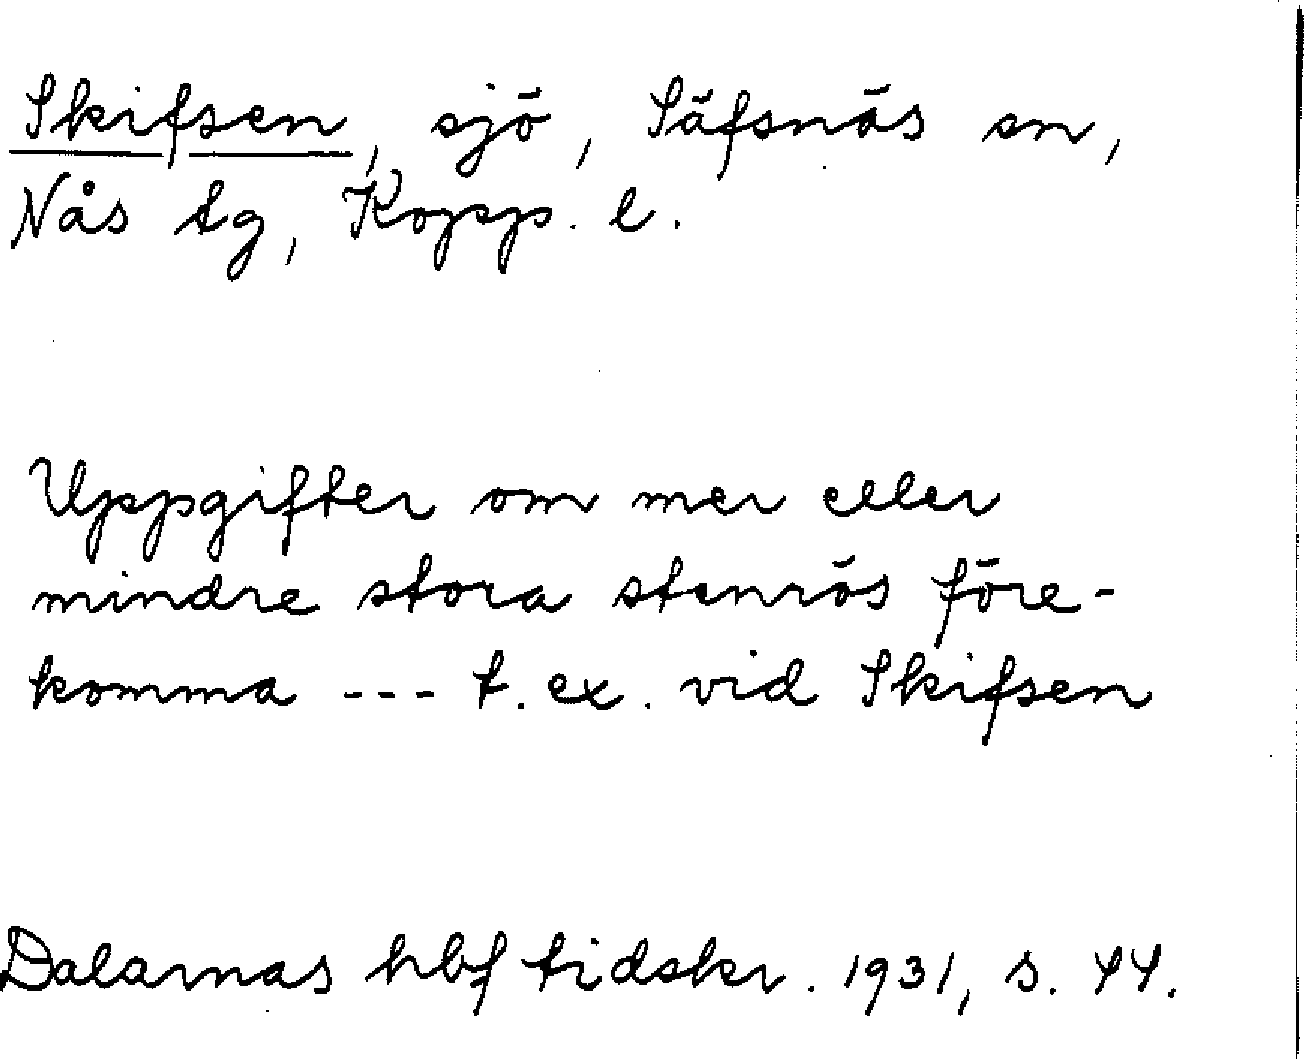 Skifsen, sjö, Säfsnäs sn,
Nås tg, Kopp. l.
Uppgifter om mer eller
mindre stora stenrös före-
komma --- t. ex. vid Skifsen
Dalarnas hbf tidskr. 1931, s. 44.